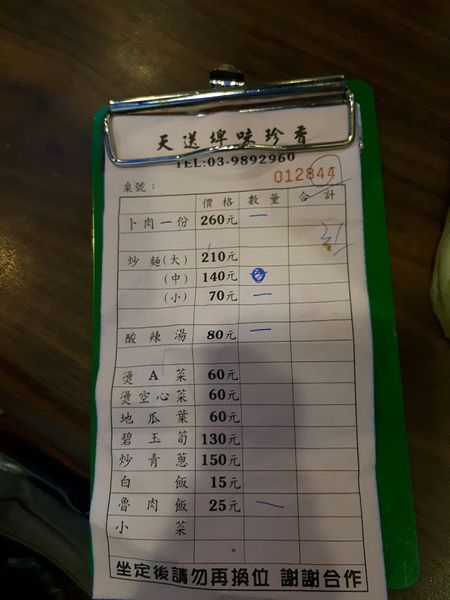 天送埤味珍香
TEL:03-9892960
012844
桌號：
價格 數量 合計
卜肉一份 260元 一
炒麵(大) 210元
(中) 140元
(小) 70元 一
酸辣湯 80元 一
燙A菜 60元
燙空心菜 60元
地瓜葉 60元
碧玉筍 130元
炒青蔥 150元
白飯 15元
魯肉飯 25元 一
小菜
坐定後請勿再換位 謝謝合作